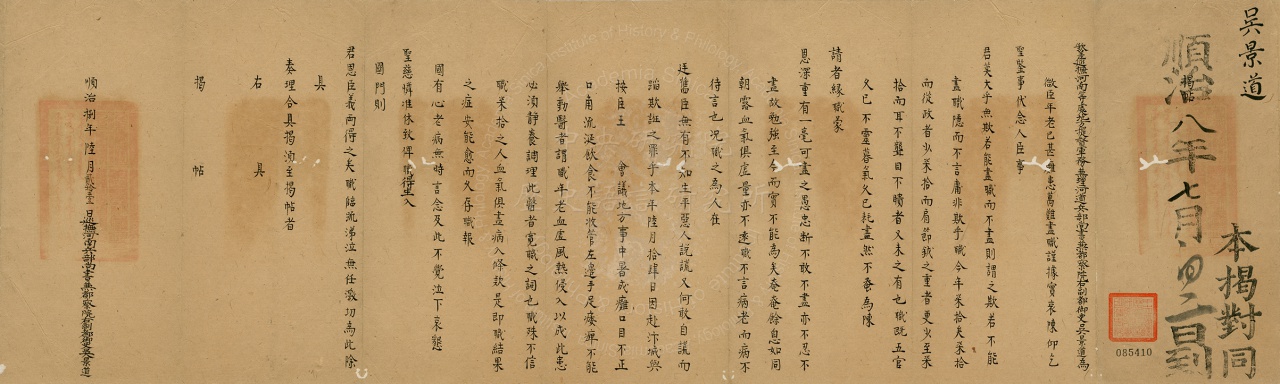 吳景道
本揭對同
順治八年七月初二日到
揭
巡撫河南等處地方提督軍務兼理河道兵部尚書兼都察院右副都御史吳景道為
微臣年老已甚雜患萬難盡職謹據實哀陳仰乞
聖鑒事代念人臣事
君莫大乎無欺若能盡職而不盡則謂之欺若不能
盡職隱而不言庸非欺乎職今年柒拾矣柒拾
而從政者少柒拾而肩節鉞之重者更少至柒
拾而耳不聾目不瞶者又未之有也職既五官
久已不靈暮氣久已耗盡然不蚤為陳
請者緣職蒙
恩深重有一毫可盡之愚忠斷不敢不盡亦不忍不
盡故勉強至今而實不能為矣奄奄餘息如同
朝露血氣俱虛量亦不遠職不言病老而病不
待言也况職之為人在
廷舊臣無有不知生平惡人說謊又何敢自謊而
蹈欺誑之罪乎本年陸月拾肆日因赴汴城與
按臣王　會議地方事中暑成癱口目不正
口角流涎飲食不能收管左邊手足痿痺不能
舉動醫者謂職年老血虛風熱侵入以成此患
必須靜養調理此醫者寬職之詞也職殊不信
職柒拾之人血氣俱盡病入條款是即職結果
之症安能愈而久存職報
國有心老病無時言念及此不覺泣下哀懇
聖慈憐准休致俾得生入
國門則
君恩臣義兩得之矣職臨疏涕泣無任激切為此除
具
奏理合具揭須至揭帖者
右　具
揭　帖
順治捌年陸月貳拾壹日巡撫河南兵部尚書兼都察院右副都御史吳景道
085410